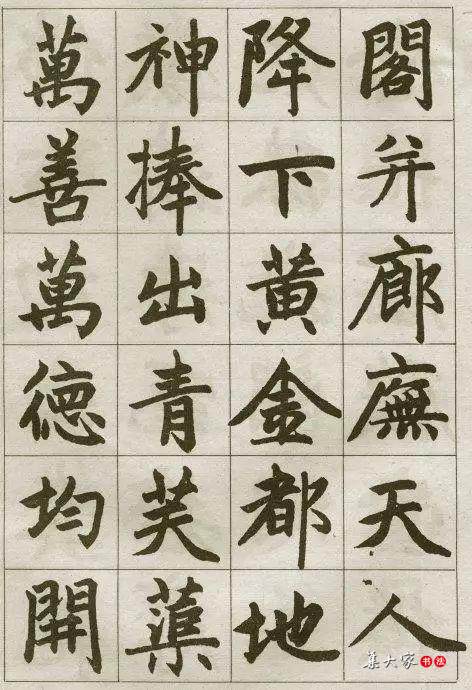 閣并廊廡天人
降下黄金都地
神捧出青芙蕖
萬善萬德均開
集大家书法